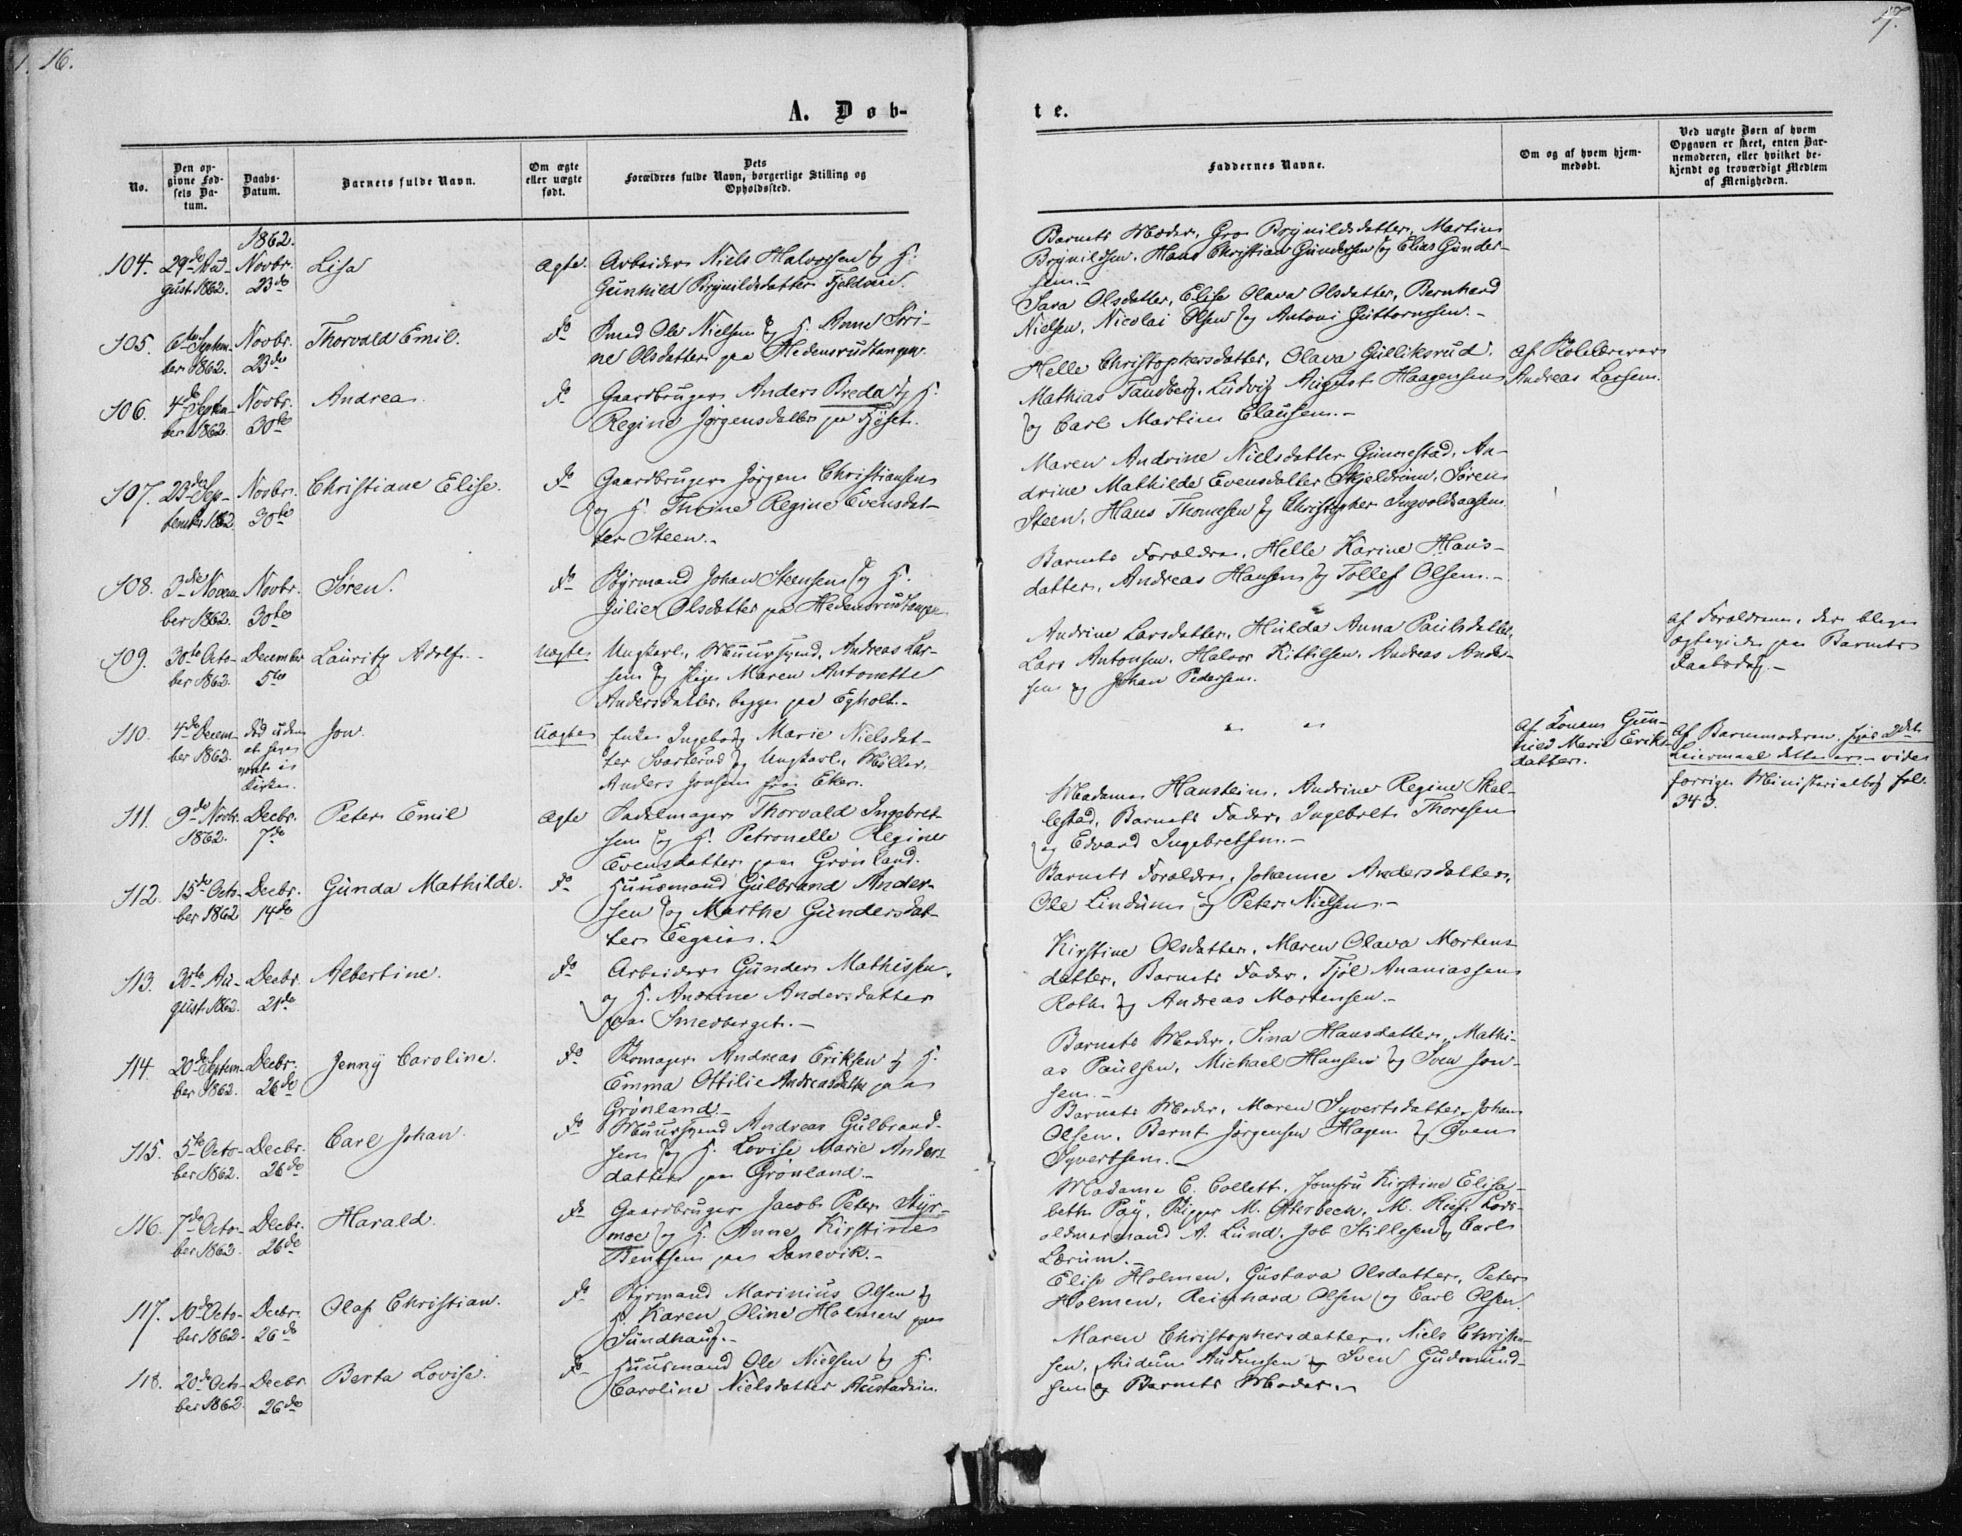 16.
17.
A. Døb-
te.
No.
Den op-
givne Fød-
sels Da-
tum.
Daabs-
Datum.
Barnets fulde Navn.
Om ægte
eller uægte
født.
Dets
Forældres fulde Navn, borgerlige Stilling og
Opholdssted.
Faddernes Navne.
Om og af hvem hjem-
medøbt.
Ved uægte Børn af hvem
Opgaven er skeet, enten Bar-
nemoderen, eller hvilket be-
kjendt og troværdigt Medlem
af Menigheden.
1862.
104. 29de Au- Novbr. Lisa ægte. Arbeider Niels Halvorsen og H.
gust 1862. 23de Gunhild Brynildsdatter
Barnets Moder, Gro Brynildsdatter, Martin
Brynildsen, Hans Christian Gundersen og Elias Gunder-
sen.-
105. 6te Septem- Novbr. Thorvald Emil. do Smed Ole Nielsen og H. Anne Seri-
ber 1862. 23de ne Olsdatter paa Hedensrudtangen.
Sara Olsdatter, Elise Olava Olsdatter, Bernhard
Nielsen, Nicolai Olsen og Antoni Guttormsen.-
106. 4de Septem- Novbr. Andrea. do Gaardbruger Anders Breda og H.
ber 1862. 30te Regine Jørgensdatter paa Fjøset.
Helle Christophersdatter, Olava Gulliksrud,
Mathias Tandberg, Ludvig August Haagensen
og Carl Martin Clausen.-
Af Skolelærer
Andreas Larsen.
107. 23de Sep- Novbr. Christiane Elise. do Gaardbruger Jørgen Christiansen
tember 1862 30te og H. Thrine Regine Evensdat-
ter Steen.-
Maren Andrine Nielsdatter Gunnestad, An-
drine Mathilde Evensdatter Skjeldrum, Søren
Steen, Hans Thomesen og Christopher Ingvoldsen
108. 3die Novem- Novbr. Søren. do Styrmand Johan Steensen og H.
ber 1862. 30te Julie Olsdatter paa Hedensrudtangen
Barnets Forældre, Helle Karine Hans-
datter, Andreas Hansen og Tollef Olsen.-
109. 30te Octo- December Lauritz Adolf.- uægte Ungkarl, Muursvend, Andreas Lar-
ber 1862. 5te sen og Pige Maren Antonette
Andersdatter, begge paa Egholt.-
Andrine Larsdatter, Hulda Anna Paulsdatter,
Lars Antonsen, Halvor Kittilsen, Andreas Ander-
sen og Johan Pedersen.
Af Forældrene, der bleve
ægteviede paa Barnets
Daabsdag.-
110. 4de Decem- død uden Jon. uægte Enke Ingeborg Marie Nielsdat-
ber 1862. at have ter Svarterud og Ungkarl, Møller,
været i Anders Jonsen fra Eker.
Kirken.
Af Konen Gun-
hild Marie Eriks-
datter.
Af Barnemoderen,
Leiermaal
forrige Ministerialbog fol.
343.
111. 9de Novbr. Decbr. Peter Emil ægte Sadelmager Thorvald Ingebret-
1862. 7de sen og H. Petronelle Regine
Evensdatter paa Grønland.
Madame Hanstein, Andrine Regine Skol-
lestad, Barnets Fader, Ingebret Thoresen
og Edvard Ingebretsen.-
112. 15de Octo- Decbr. Gunda Mathilde. do Huusmand Gulbrand Ander-
ber 1862 14de sen og Marthe Gundersdat-
ter
Barnets Forældre, Johanne Andersdatter,
Ole Lindum og Peter Nielsen.-
113. 30te Au- Decbr. Albertine. do Arbeider Gunder Mathissen,
gust 1862. 21de og H. Andrine Andersdatter
paa Smedberget.-
Kirstine Olsdatter, Maren Olava Mortens-
datter, Barnets Fader, Tjøl Ananiassen
Roth og Andreas Mortensen.-
114. 20de Septem- Decbr. Jenny Caroline. do Andreas Eriksen og H.
ber 1862. 26de Emma Ottilie Andreasdatter paa
Grønland.-
Barnets Moder, Sina Hansdatter, Mathi-
as Paulsen, Michael Hansen og Sven Jon-
sen.-
115. 5te Octo- Decbr. Carl Johan. do Muursvend Andreas Gulbrand-
ber 1862. 26de sen og H. Lovise Marie Anders-
datter paa Grønland.-
Barnets Moder, Maren Syvertsdatter, Johan
Olsen, Bernt Jørgensen Hagen og Sven
Syvertsen.-
116. 7de Octo- Decbr. Harald. do Gaardbruger Jacob Peter Styr-
ber 1862. 26de moe og H. Anne Kirstine
Bentsen paa Danevik.-
Madame C. Collett, Jomfru Kirstine Elisa-
beth Pay, M. Otterbech, M. Lods-
oldermand A. Lund, Job Stillesen og Carl
Lærum.-
117. 10de Octo- Decbr. Olaf Christian. do Styrmand Marinius Olsen og
ber 1862. 26de H. Karen Oline Holmen paa
Sundhaug.-
Elise Holmen, Gustava Olsdatter, Peter
Holmen, Reinhard Olsen og Carl Olsen.
118. 20de Octo- Decbr. Berta Lovise. do Huusmand Ole Nielsen og H.
ber 1862. 26de Caroline Nielsdatter
Maren Christophersdatter, Niels Christen-
sen, Audun Audunsen og Sven Gudmund-
sen og Barnets Moder.-